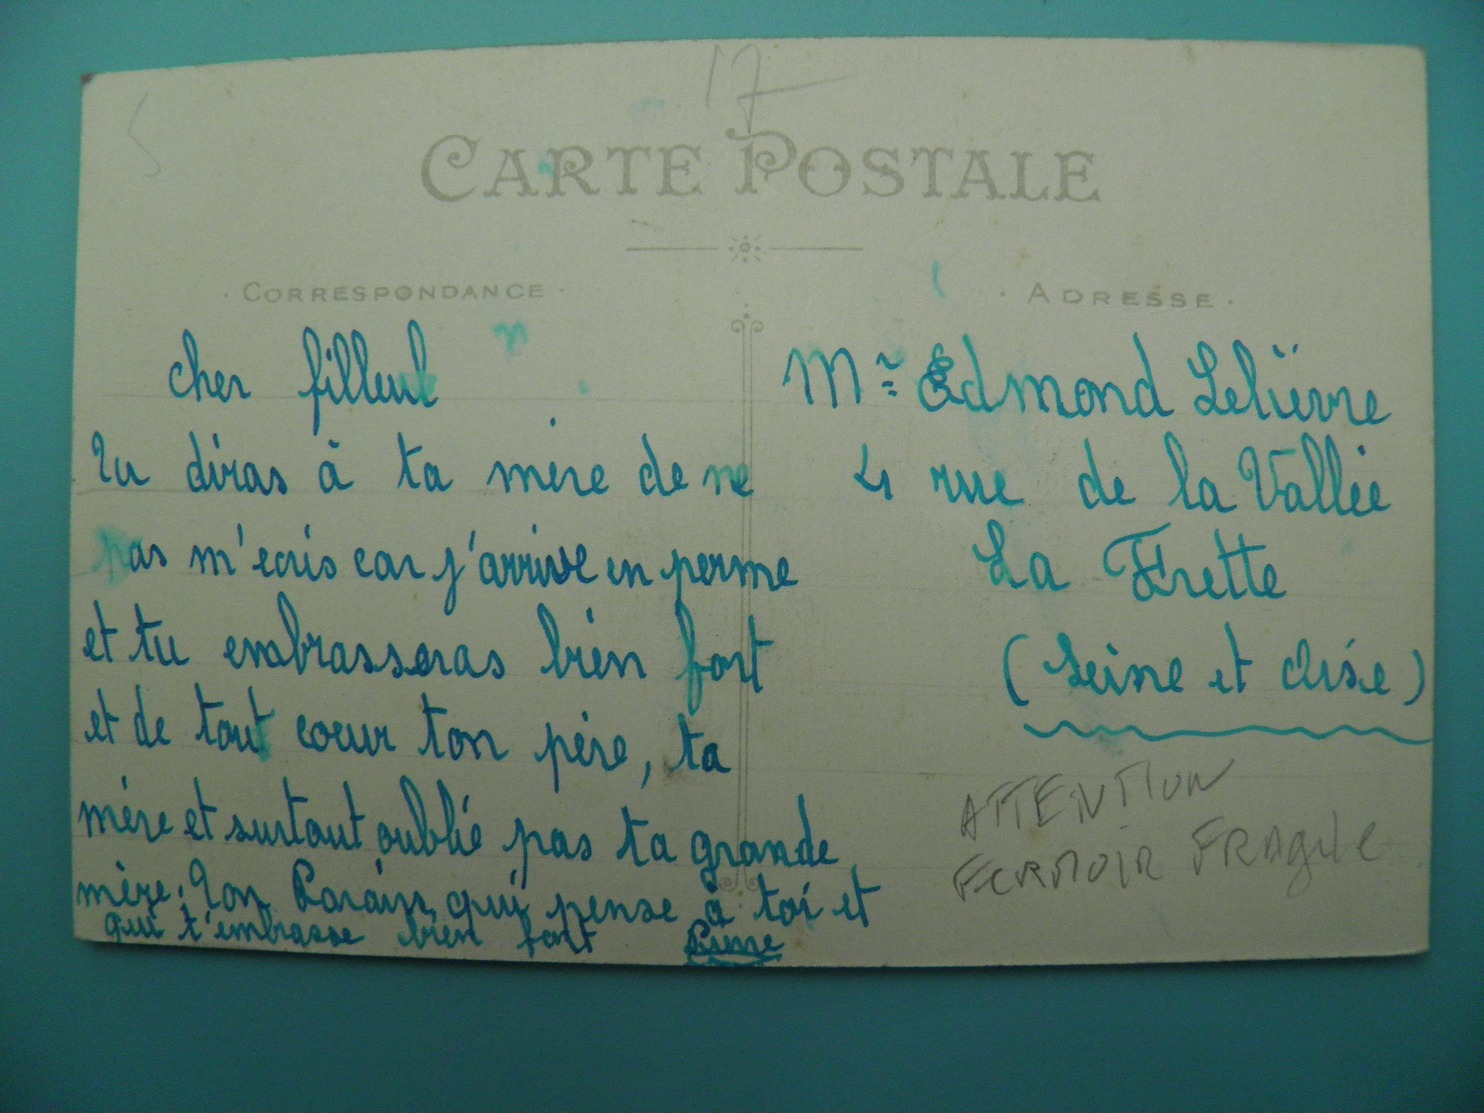 17
CARTE POSTALE
CORRESPONDANCE
cher filleul
Tu diras à ta mère de ne
pas m'ecris car j'arrive en perme
et tu embrasseras bien fort
et de tout coeur ton père, ta
mère et surtout oublié pas ta grande
mère. Ton Parain qui pense à toi et
qui t'embrasse bien fort
ADRESSE
Mr Edmond Lelièvre
4 rue de la Vallée
La Frette
(Seine et Oise)
ATTENTION
FERMOIR FRAgile